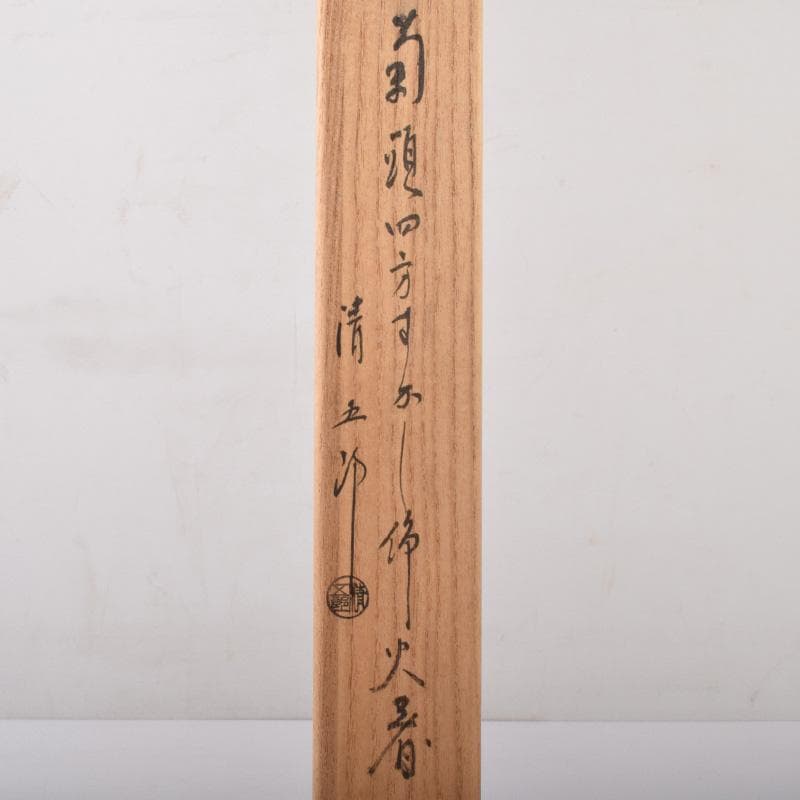 菊頭四方すかし飾火箸
清五郎